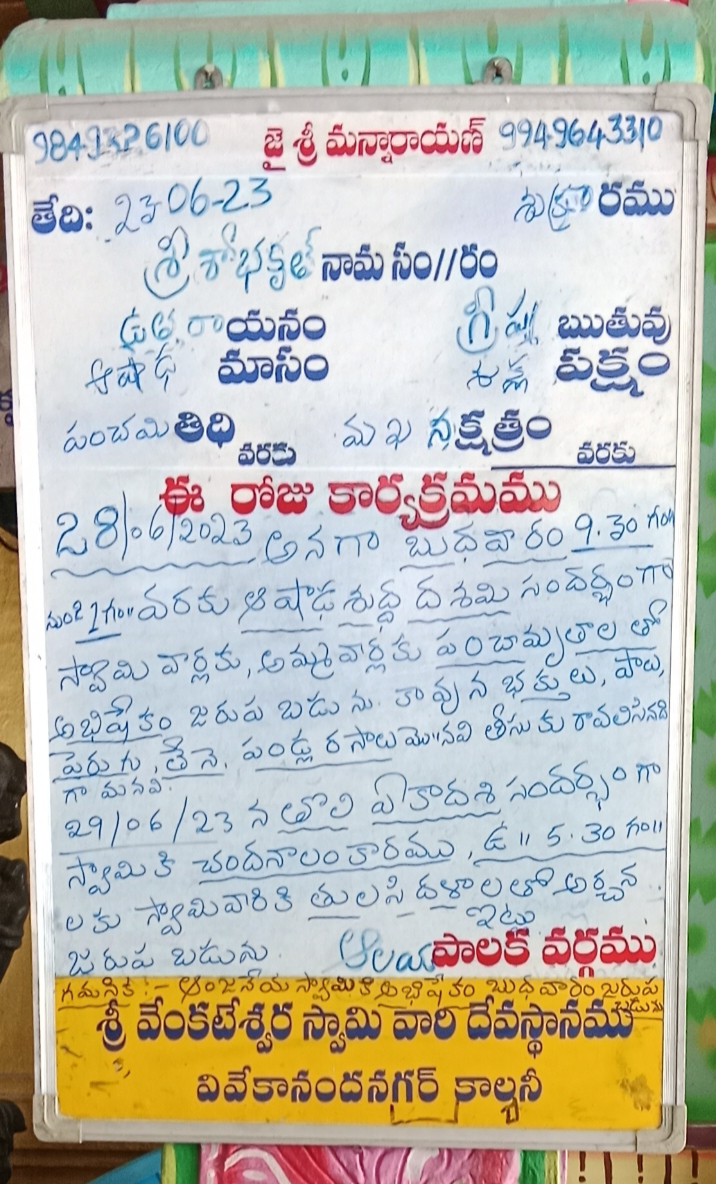 9849326100 జై శ్రీ మన్నారాయణ్ 9949643310
తేది: 23-06-23 శుక్రవారము
శ్రీ శోభకృత్ నామ సం//రం
ఉత్తరాయనం గ్రీష్మ ఋతువు
ఆషాఢ మాసం శుక్ల పక్షం
పంచమి తిధి వరకు మఖ నక్షత్రం వరకు
ఈ రోజు కార్యక్రమము
28/06/2023 అనగా బుధవారం 9.30 గం॥
నుం2 11గం॥ వరకు ఆషాఢ శుద్ధ దశమి సందర్భంగా
స్వామి వార్లకు, అమ్మవార్లకు పంచామృతాల తో
అభిషేకం జరుప బడును. కావున భక్తులు, పాలు,
పెరుగు, తేనె, పండ్ల రసాలు మొ॥నవి తీసుకు రావలసినది
గా మనవి.
29/06/23 న తొలి ఏకాదశి సందర్భం గా
స్వామికి చందనాలంకారము, ఉ॥ 5.30 గం॥
లకు స్వామివారికి తులసి దళాలతో అర్చన
జరుప బడును. ఇట్లు
ఆలయ పాలక వర్గము
గమనిక :- ఆంజనేయ స్వామికి అభిషేకం బుధవారం జరుప
బడును
శ్రీ వేంకటేశ్వర స్వామి వారి దేవస్థానము
వివేకానందనగర్ కాల్వనీ